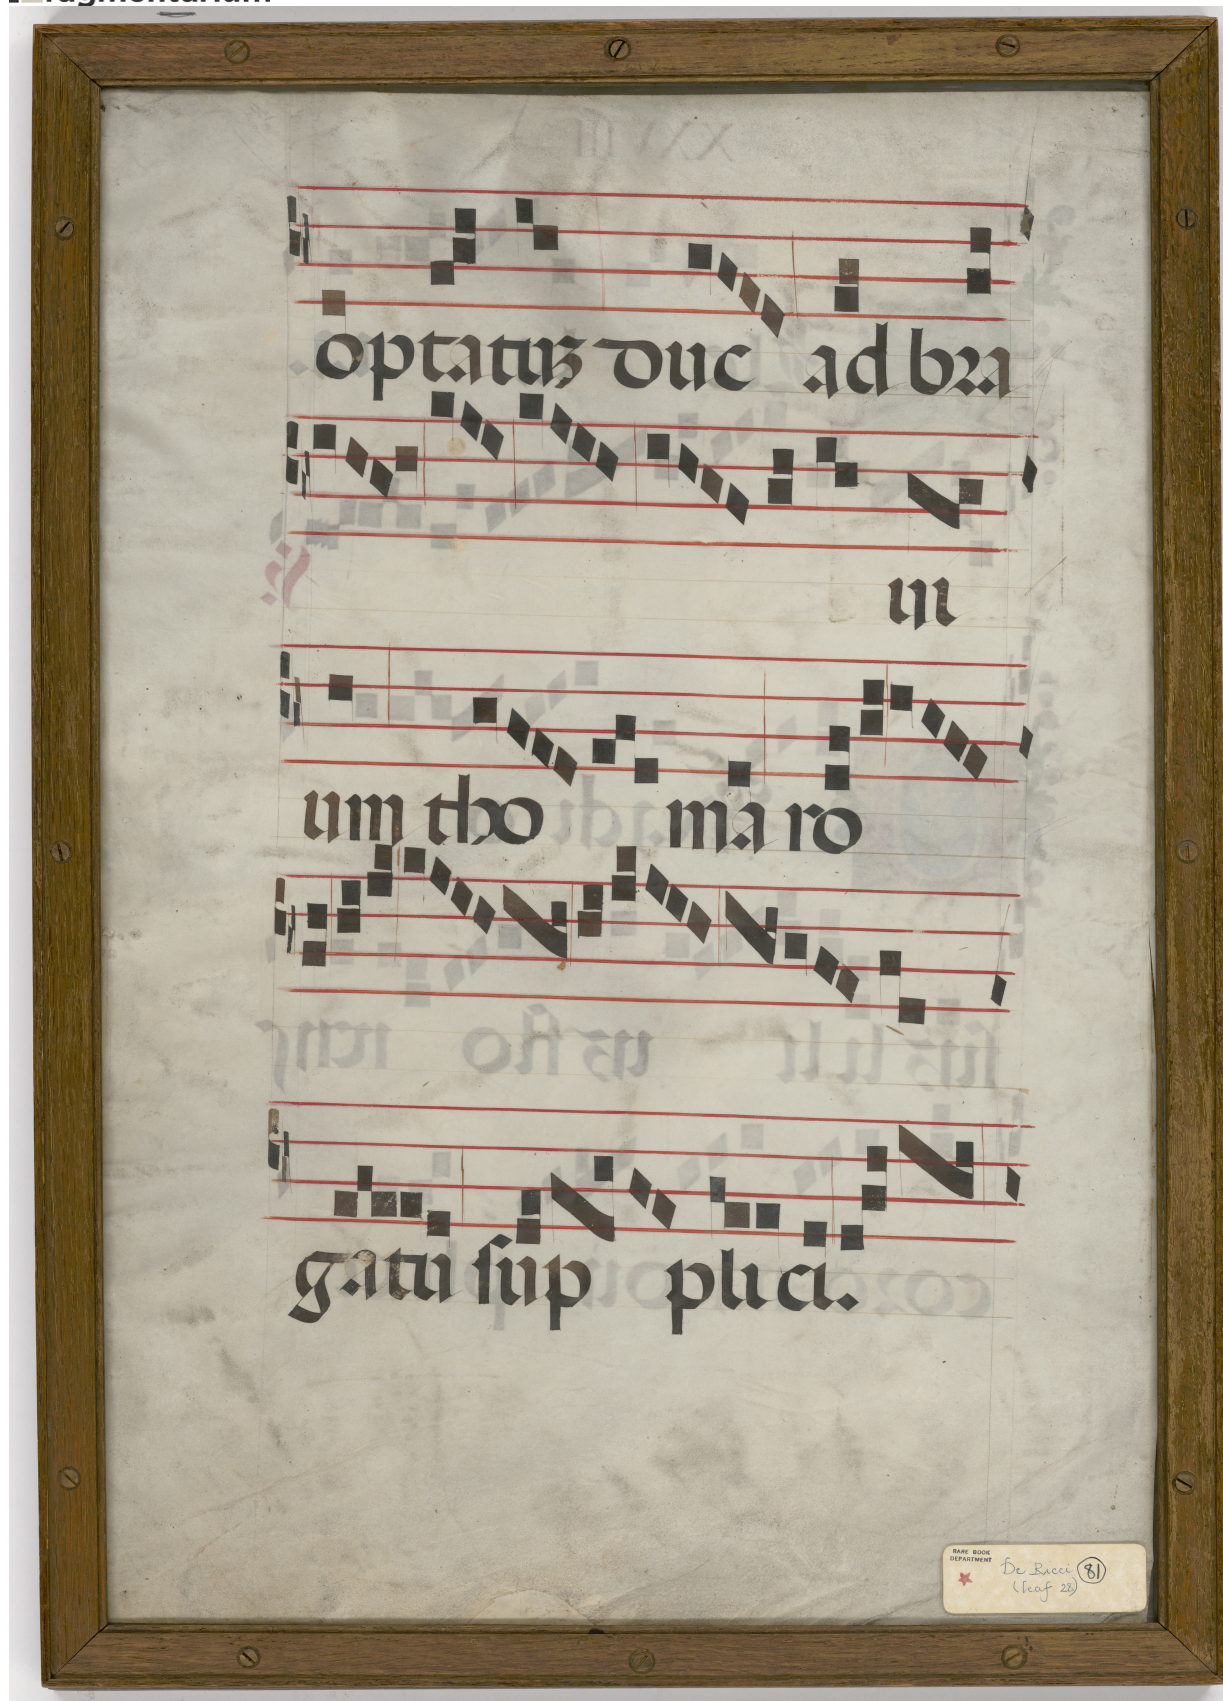 optatuʒ duc ad bra
ui
um tho ma ro
gatu sup plici.
RARE BOOK
DEPARTMENT
De Ricci 81
(leaf 28)